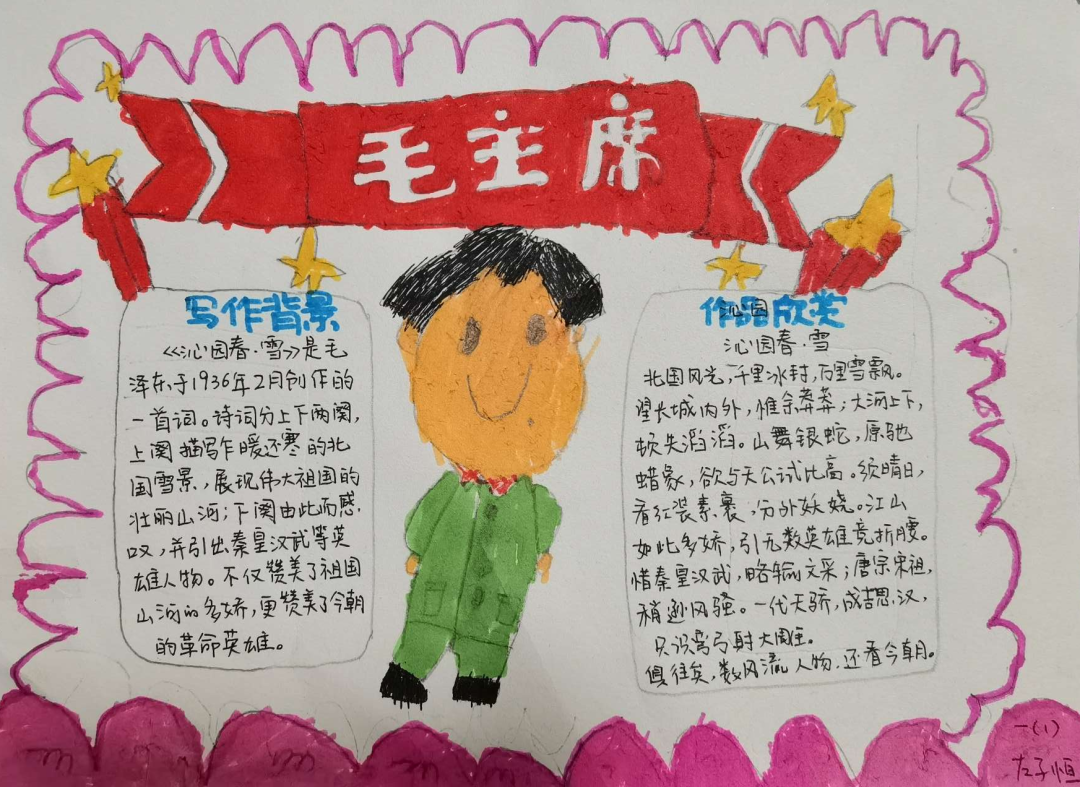 毛主席
写作背景
《沁园春·雪》是毛
泽东于1936年2月创作的
一首词。诗词分上下两阕,
上阕描写乍暖还寒的北
国雪景,展现伟大祖国的
壮丽山河;下阕由此而感
叹,并引出秦皇汉武等英
雄人物。不仅赞美了祖国
山河的多娇,更赞美了今朝
的革命英雄。
作品欣赏
沁园
沁园春·雪
北国风光,千里冰封,万里雪飘。
望长城内外,惟余莽莽;大河上下,
顿失滔滔。山舞银蛇,原驰
蜡象,欲与天公试比高。须晴日,
看红装素裹,分外妖娆。江山
如此多娇,引无数英雄竞折腰。
惜秦皇汉武,略输文采;唐宗宋祖,
稍逊风骚。一代天骄,成吉思汗,
只识弯弓射大雕。
俱往矣,数风流人物,还看今朝。
一(1)
左子恒